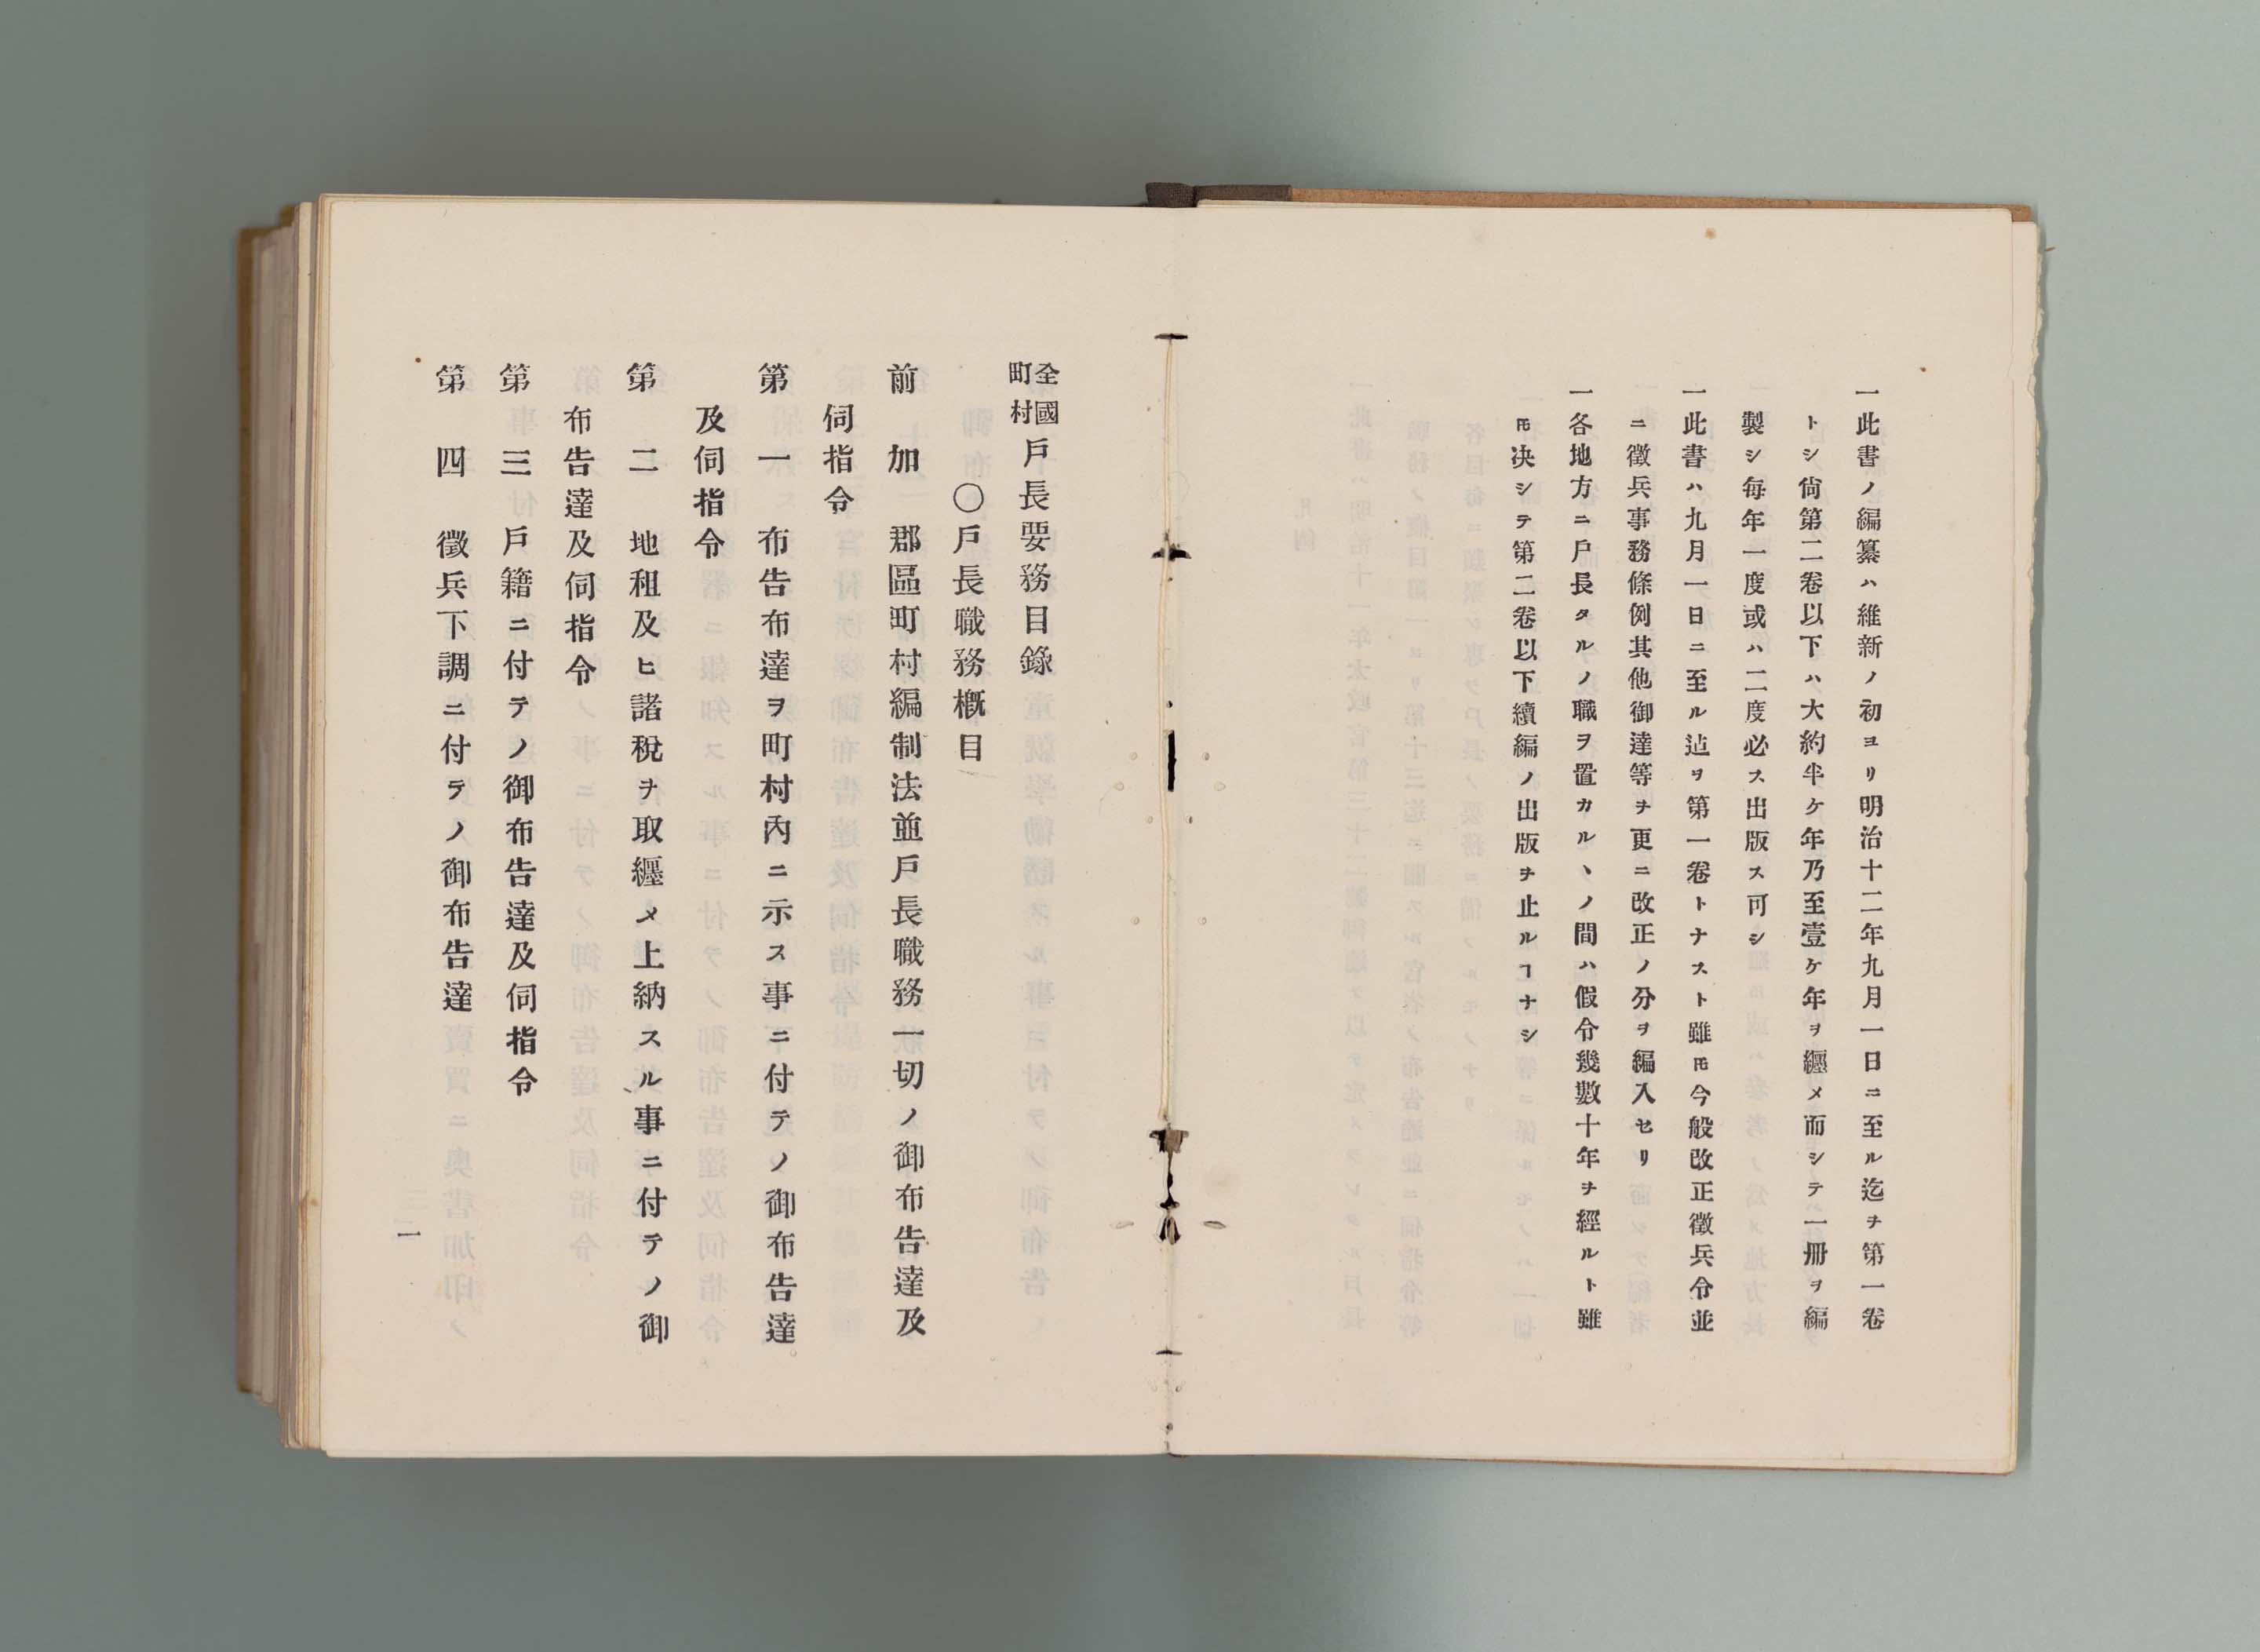 一此書ノ編纂ハ維新ノ初ヨリ明治十二年九月一日ニ至ル迄ヲ第一卷
トシ尙第二卷以下ハ大約半ケ年乃至壹ケ年ヲ纒メ而シテ一册ヲ編
製シ每年一度或ハ二度必ス出版ス可シ
一此書ハ九月一日ニ至ル迠ヲ第一卷トナスト雖ㇳモ今般改正徵兵令並
ニ徵兵事務條例其他御達等ヲ更ニ改正ノ分ヲ編入セリ
一各地方ニ戶長タルノ職ヲ置カルヽノ間ハ假令幾數十年ヲ經ルト雖
ㇳモ决シテ第二卷以下續編ノ出版ヲ止ルヿナシ
全國町村戶長要務目錄
〇戶長職務槪目
前加 郡區町村編制法並戶長職務一切ノ御布告達及
伺指令
第一 布告布達ヲ町村內ニ示ス事ニ付テノ御布告達
及伺指令
第二 地租及ヒ諸稅ヲ取纒メ上納スル事ニ付テノ御
布告達及伺指令
第三 戶籍ニ付テノ御布告達及伺指令
第四 徵兵下調ニ付テノ御布告達
一